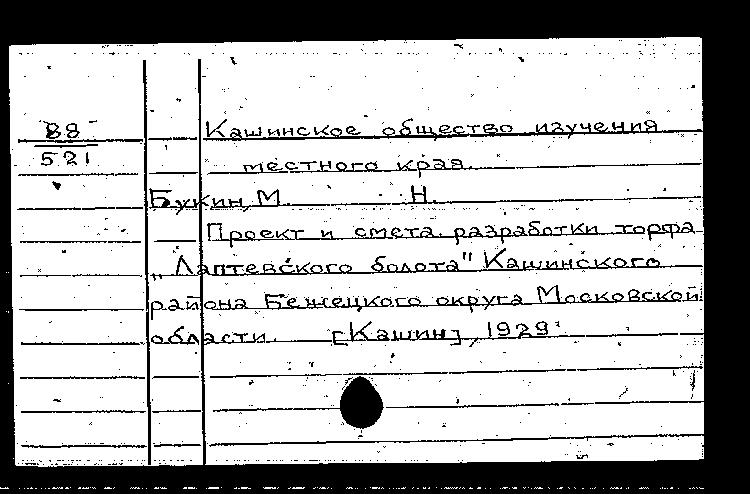 88
521
Кашинское общество изучения
местного края.
Букин, М. Н.
Проект и смета разработки торфа
„Лаптевского болота" Кашинского
района Бежецкого округа Московской
области. [Кашин], 1929.